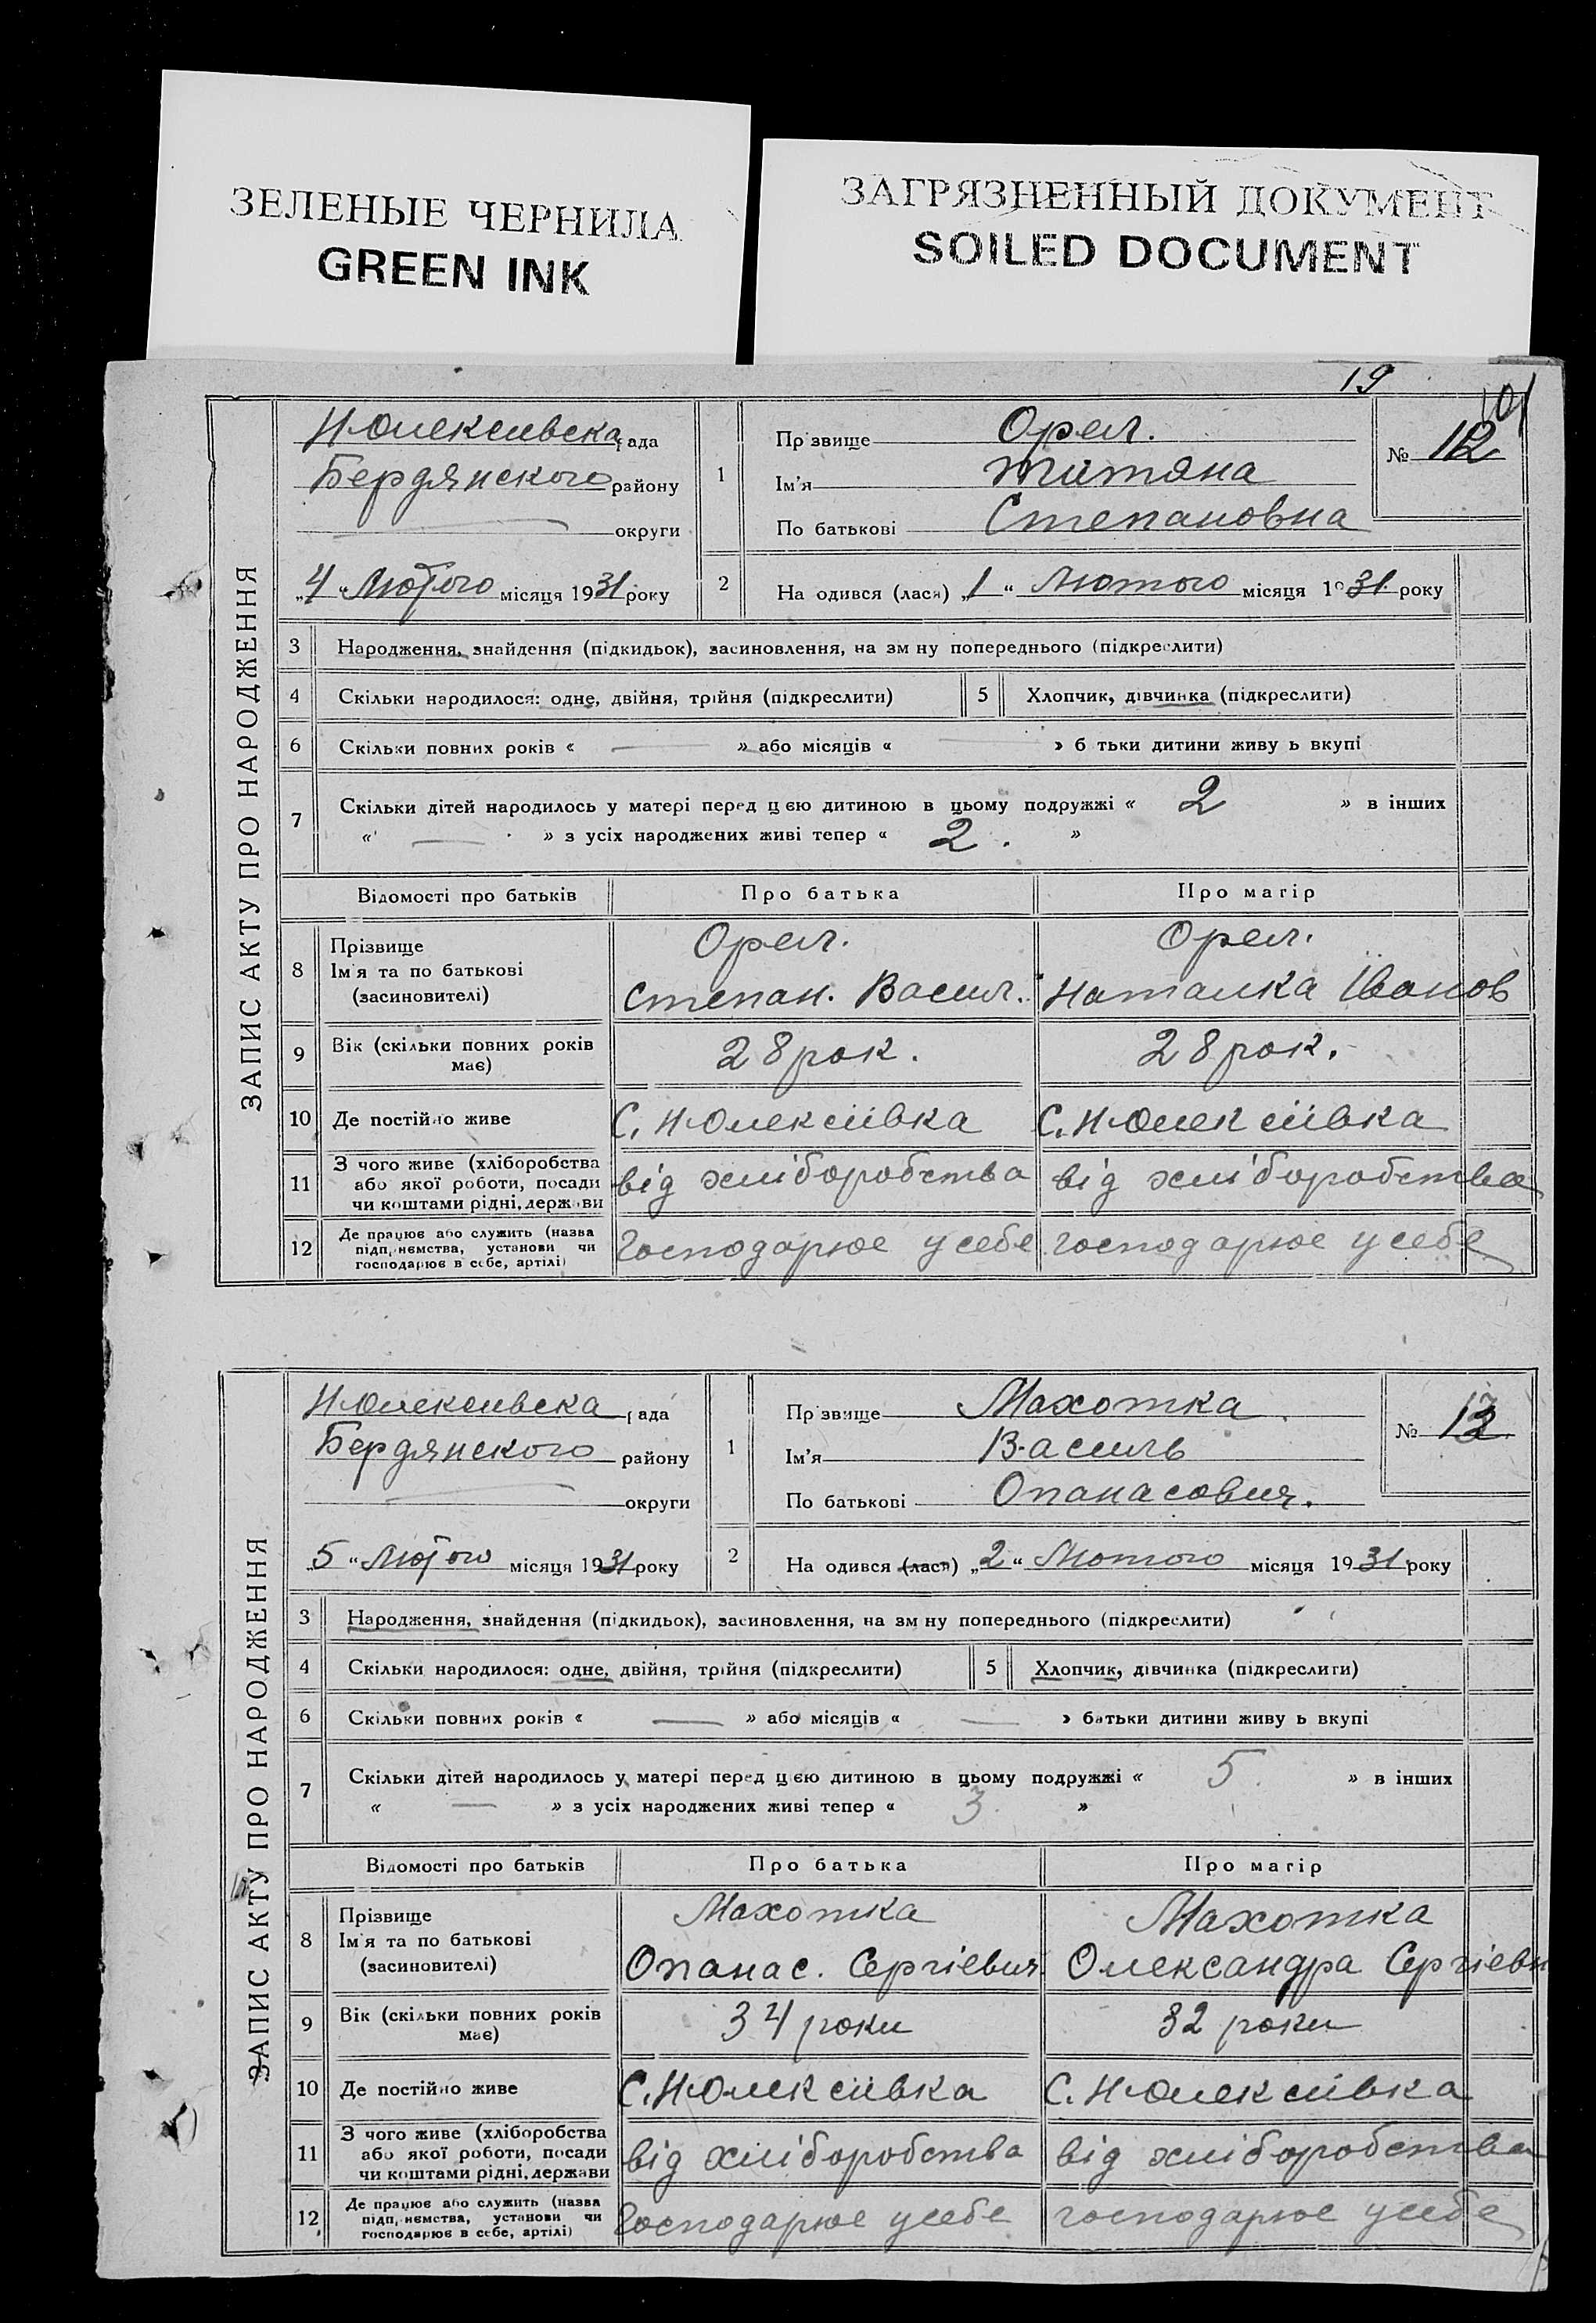 ЗЕЛЕНЫЕ ЧЕРНИЛА
GREEN INK
ЗАГРЯЗНЕННЫЙ ДОКУМЕНТ
SOILED DOCUMENT
19
ЗАПИС АКТУ ПРО НАРОДЖЕННЯ
Н-Олексиївска рада
Бердянского району
округи
„4“ Лютого місяця 1931 року
1
Прзвище Орел.
Ім'я Титяна
По батькові Степановна
№ 12
2
На одився (лася) „1“ Лютого місяця 1931 року
3 Народження, знайдення (підкидьок), засиновлення, на зм ну попереднього (підкреслити)
4 Скільки народилося: одне, двійня, трійня (підкреслити) 5 Хлопчик, дівчинка (підкреслити)
6 Скільки повних років « — » або місяців « — » б тьки дитини живу ь вкупі
7 Скільки дітей народилось у матері перед цією дитиною в цьому подружжі « 2 » в інших
« — » з усіх народжених живі тепер « 2. »
Відомості про батьків Про батька Про матір
8 Прізвище
Ім'я та по батькові
(засиновителі)
Орел.
Степан. Васил.
Орел.
Наталка Іванов
9 Вік (скільки повних років
має)
28 рок. 28 рок.
10 Де постійно живе С. Н-Олексіївка С. Н-Олексіївка
11 З чого живе (хліборобства
або якої роботи, посади
чи коштами рідні, держави
від хліборобства від хліборобства
12 Де працює або служить (назва
підп, ємства, установи чи
господарює в себе, артілі)
Господарює усебе господарює усебе
ЗАПИС АКТУ ПРО НАРОДЖЕННЯ
Н-Олексиївска рада
Бердянского району
округи
„5“ Лютого місяця 1931 року
1
Прзвище Махотка
Ім'я Василь
По батькові Опанасович.
№ 13
2
На одився (лася) „2“ Лютого місяця 1931 року
3 Народження, знайдення (підкидьок), засиновлення, на зм ну попереднього (підкреслити)
4 Скільки народилося: одне, двійня, трійня (підкреслити) 5 Хлопчик, дівчинка (підкреслити)
6 Скільки повних років « — » або місяців « — » батьки дитини живу ь вкупі
7 Скільки дітей народилось у матері перед цією дитиною в цьому подружжі « 5. » в інших
« — » з усіх народжених живі тепер « 3. »
Відомості про батьків Про батька Про матір
8 Прізвище
Ім'я та по батькові
(засиновителі)
Махотка
Опанас. Сергієвич.
Махотка
Олександра Сергієвн
9 Вік (скільки повних років
має)
34 роки 32 роки
10 Де постійно живе С. Н-Олексіївка С. Н-Олексіївка
11 З чого живе (хліборобства
або якої роботи, посади
чи коштами рідні, держави
від хліборобства від хліборобства
12 Де працює або служить (назва
підп, ємства, установи чи
господарює в себе, артілі)
Господарює усебе господарює усебе